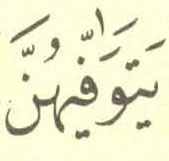 يَتَوَفّٰىهُنَّ